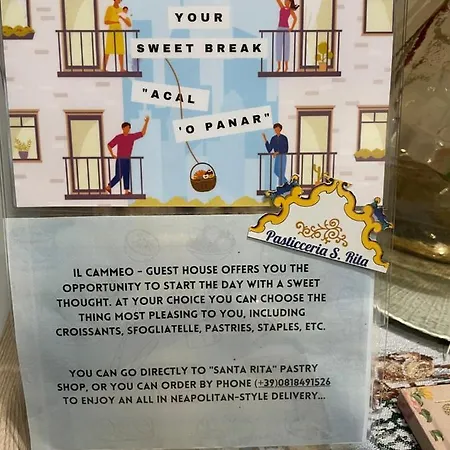 YOUR
SWEET BREAK
"ACAL
'O PANAR"
Pasticceria S. Rita
IL CAMMEO - GUEST HOUSE OFFERS YOU THE
OPPORTUNITY TO START THE DAY WITH A SWEET
THOUGHT. AT YOUR CHOICE YOU CAN CHOOSE THE
THING MOST PLEASING TO YOU, INCLUDING
CROISSANTS, SFOGLIATELLE, PASTRIES, STAPLES, ETC.
YOU CAN GO DIRECTLY TO "SANTA RITA" PASTRY
SHOP, OR YOU CAN ORDER BY PHONE (+39)0818491526
TO ENJOY AN ALL IN NEAPOLITAN-STYLE DELIVERY...